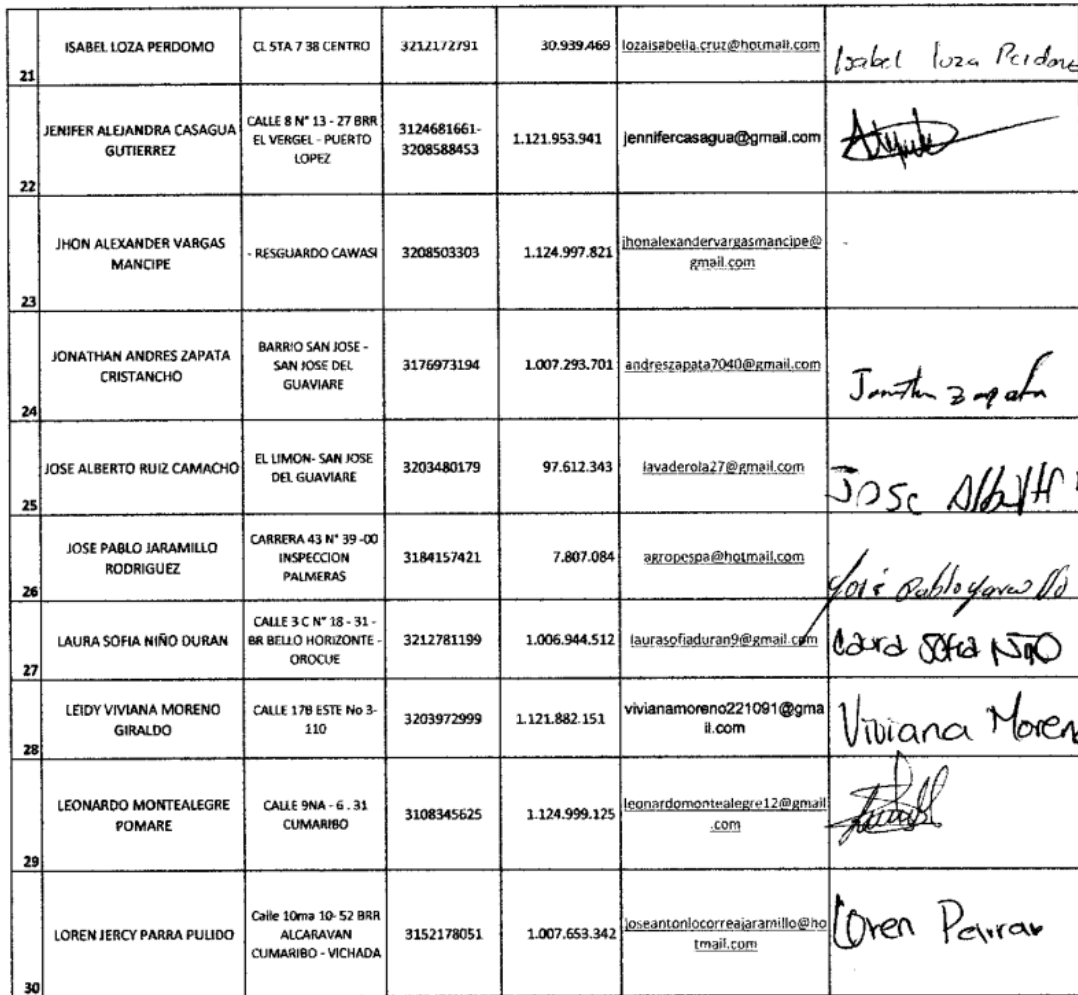 21 ISABEL LOZA PERDOMO CL 5TA 7 38 CENTRO 3212172791 30.939.469 lozaisabella.cruz@hotmail.com Isabel loza Perdomo
22 JENIFER ALEJANDRA CASAGUA GUTIERREZ CALLE 8 N° 13 - 27 BRR EL VERGEL - PUERTO LOPEZ 3124681661- 3208588453 1.121.953.941 jennifercasagua@gmail.com
23 JHON ALEXANDER VARGAS MANCIPE - RESGUARDO CAWASI 3208503303 1.124.997.821 jhonalexandervargasmancipe@gmail.com
24 JONATHAN ANDRES ZAPATA CRISTANCHO BARRIO SAN JOSE - SAN JOSE DEL GUAVIARE 3176973194 1.007.293.701 andreszapata7040@gmail.com Jonathan Zapata
25 JOSE ALBERTO RUIZ CAMACHO EL LIMON- SAN JOSE DEL GUAVIARE 3203480179 97.612.343 lavaderola27@gmail.com Jose
26 JOSE PABLO JARAMILLO RODRIGUEZ CARRERA 43 N° 39 -00 INSPECCION PALMERAS 3184157421 7.807.084 agropespa@hotmail.com José Pablo Jaramillo
27 LAURA SOFIA NIÑO DURAN CALLE 3 C N° 18 - 31 - BR BELLO HORIZONTE - OROCUE 3212781199 1.006.944.512 laurasofiaduran9@gmail.com Laura Sofia Niño
28 LEIDY VIVIANA MORENO GIRALDO CALLE 17B ESTE No 3-110 3203972999 1.121.882.151 vivianamoreno221091@gmail.com Viviana Moreno
29 LEONARDO MONTEALEGRE POMARE CALLE 9NA - 6 . 31 CUMARIBO 3108345625 1.124.999.125 leonardomontealegre12@gmail.com
30 LOREN JERCY PARRA PULIDO Calle 10ma 10- 52 BRR ALCARAVAN CUMARIBO - VICHADA 3152178051 1.007.653.342 joseantoniocorreajaramillo@hotmail.com Loren Parra